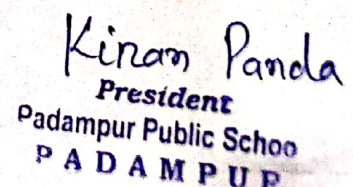 Kiran Panda
President
Padampur Public Schoo
PADAMPUR